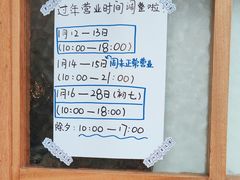 过年营业时间调整啦
1月12—13日
(10:00—18:00)
1月14—15日周末正常营业
(10:00—21:00)
1月16—28日(初七)
(10:00—18:00)
除夕:10:00—17:00